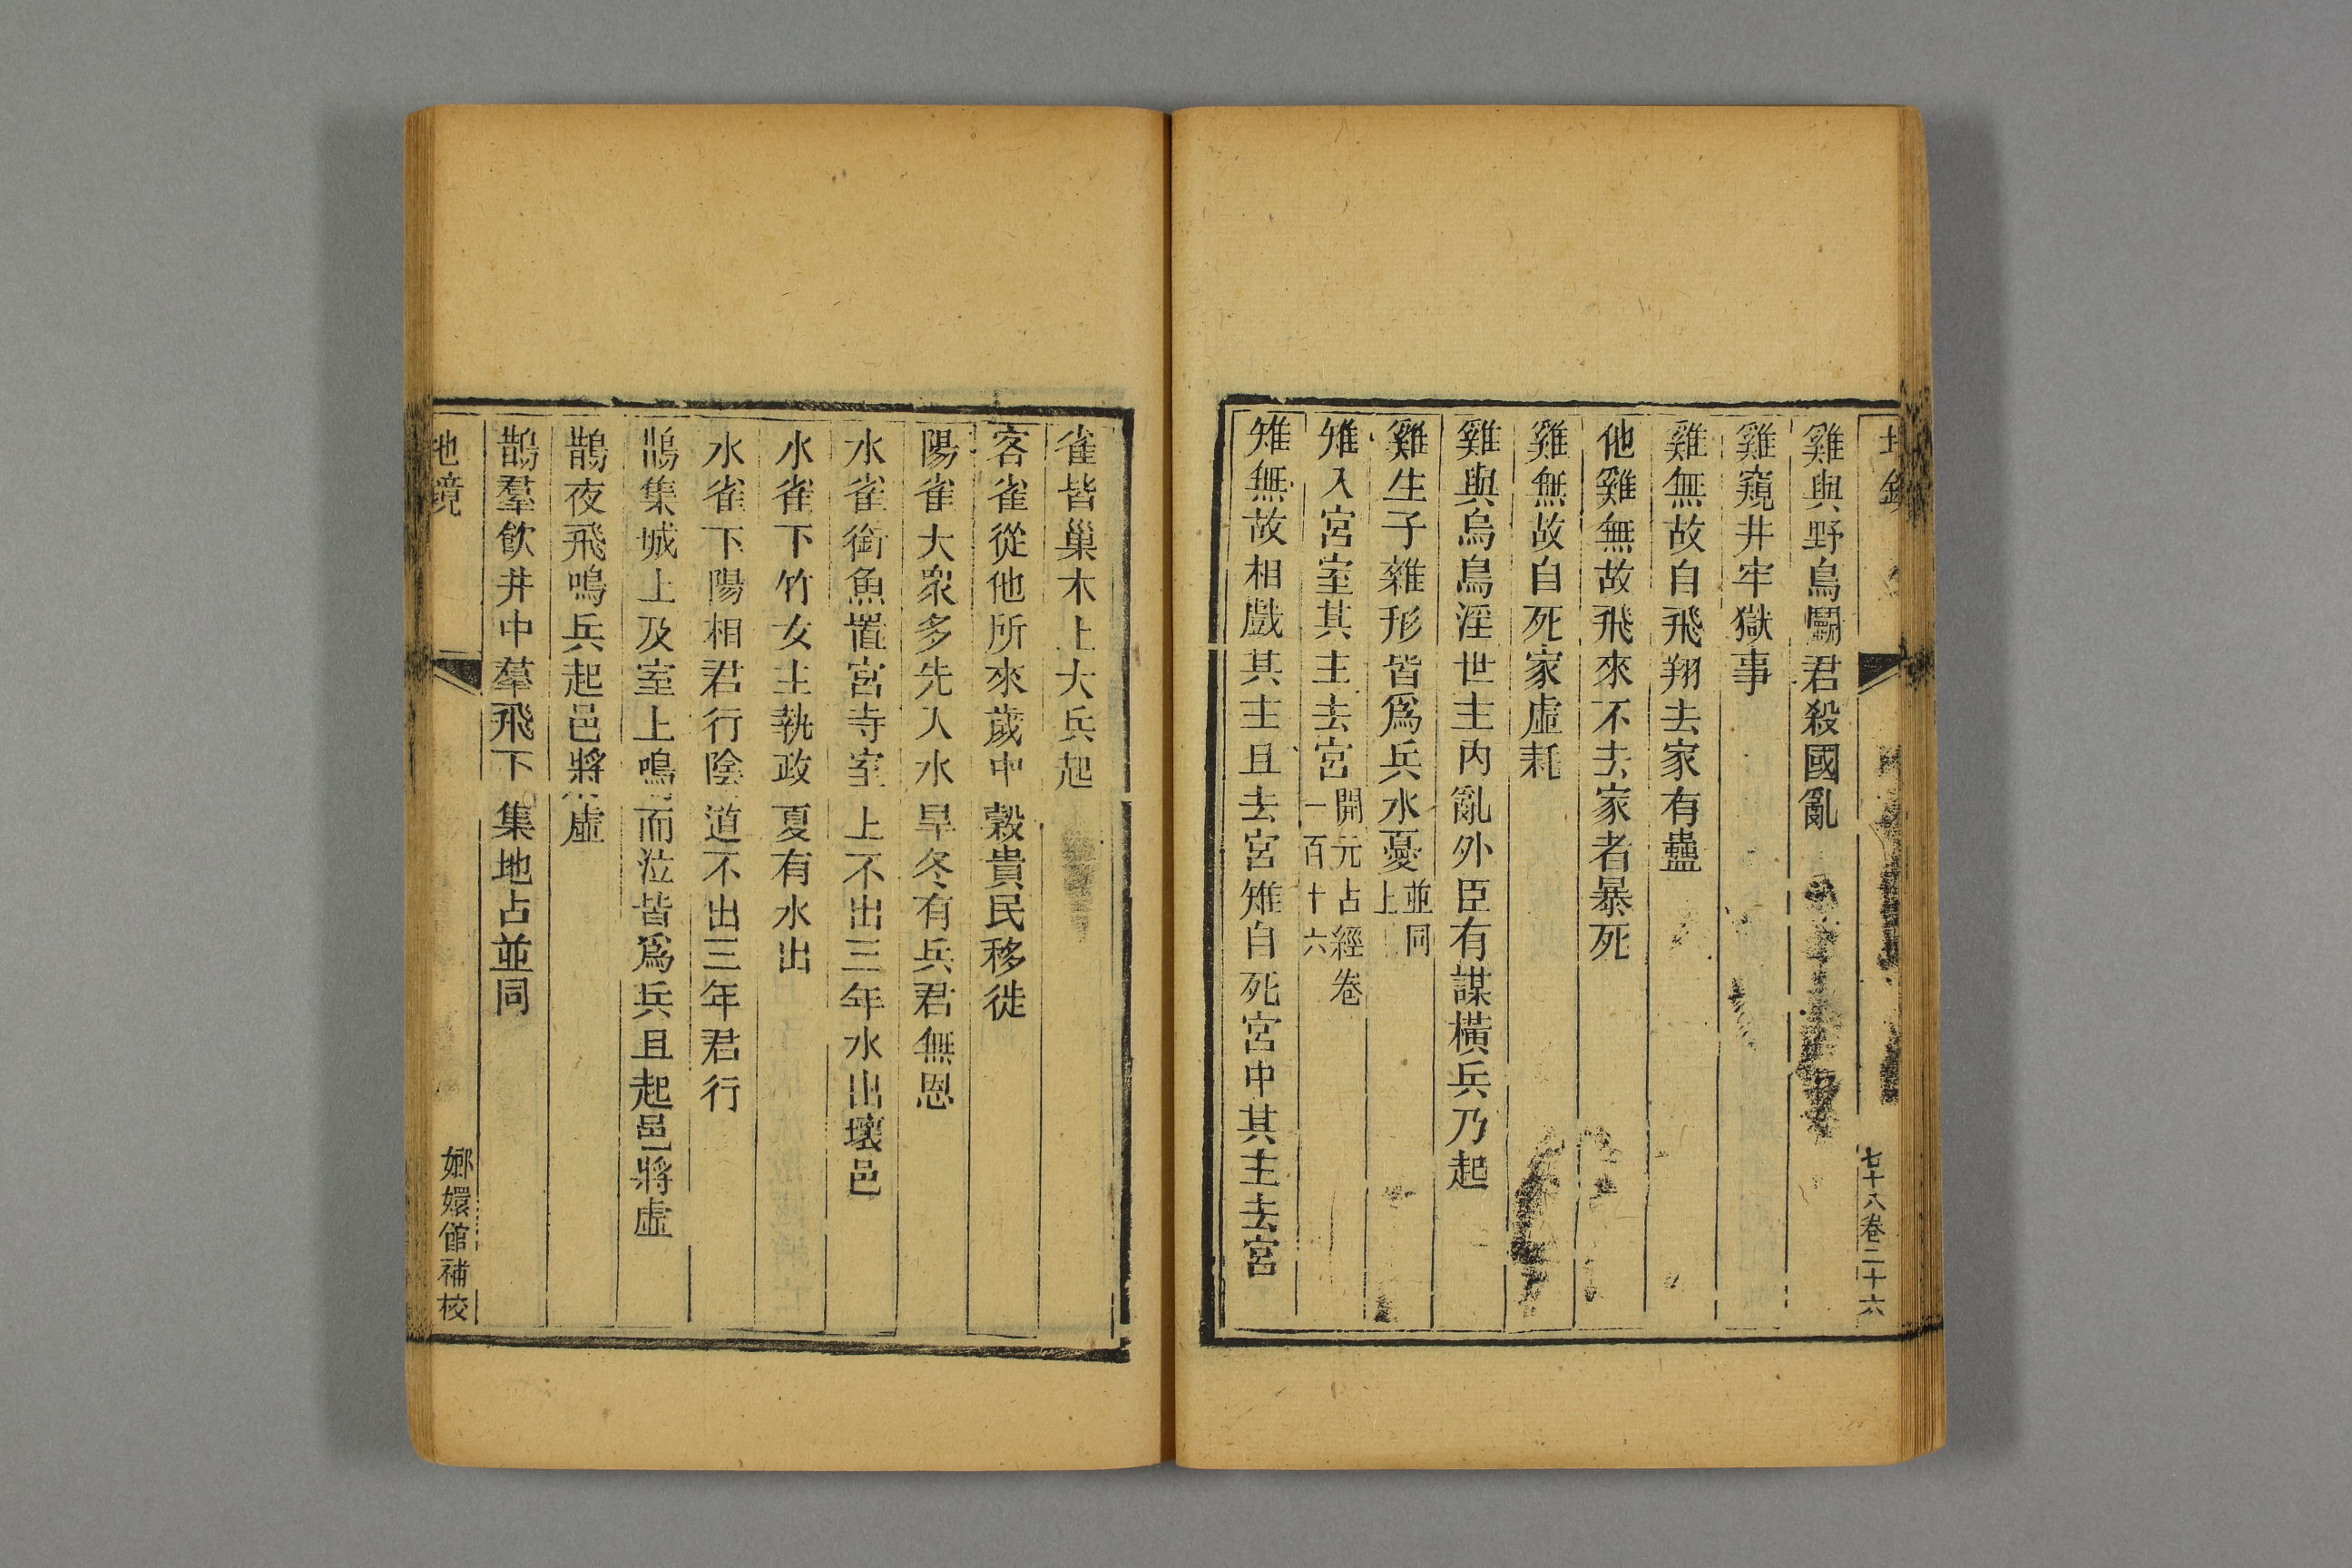 七十八卷二十六
雞與野鳥鬭君殺國亂
雞窺井牢獄事
雞無故自飛翔去家有蠱
他雞無故飛來不去家者暴死
雞無故自死家虛耗
雞與烏鳥淫世主內亂外臣有謀橫兵乃起
雞生子雜形皆爲兵水憂並同上
雉入宮室其主去宮開元占經卷一百十六
雉無故相戲其主且去宮雉自死宮中其主去宮
雀皆巢木上大兵起
客雀從他所來歲中穀貴民移徙
陽雀大眾多先入水旱冬有兵君無恩
水雀銜魚置宮寺室上不出三年水出壞邑
水雀下竹女主執政夏有水出
水雀下陽相君行陰道不出三年君行
鵲集城上及室上鳴而泣皆爲兵且起邑將虛
鵲夜飛鳴兵起邑將虛
鵲羣飲井中羣飛下集地占並同
地鏡
嫏嬛館補校